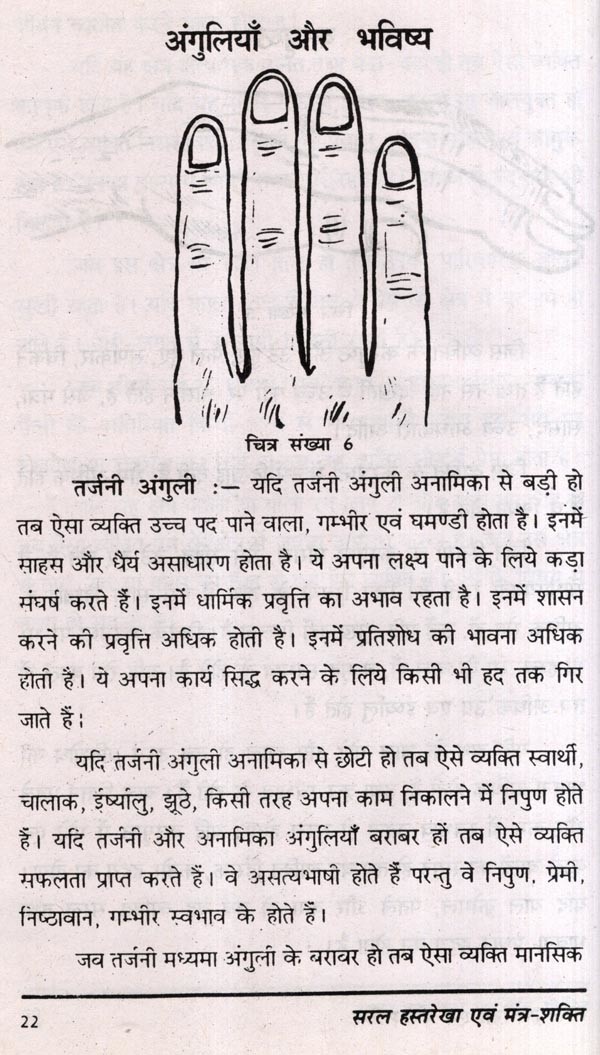 अंगुलियाँ और भविष्य
चित्र संख्या 6
तर्जनी अंगुली :— यदि तर्जनी अंगुली अनामिका से बड़ी हो
तब ऐसा व्यक्ति उच्च पद पाने वाला, गम्भीर एवं घमण्डी होता है। इनमें
साहस और धैर्य असाधारण होता है। ये अपना लक्ष्य पाने के लिये कड़ा
संघर्ष करते हैं। इनमें धार्मिक प्रवृत्ति का अभाव रहता है। इनमें शासन
करने की प्रवृत्ति अधिक होती है। इनमें प्रतिशोध की भावना अधिक
होती है। ये अपना कार्य सिद्ध करने के लिये किसी भी हद तक गिर
जाते हैं।
यदि तर्जनी अंगुली अनामिका से छोटी हो तब ऐसे व्यक्ति स्वार्थी,
चालाक, ईर्ष्यालु, झूठे, किसी तरह अपना काम निकालने में निपुण होते
हैं। यदि तर्जनी और अनामिका अंगुलियाँ बराबर हों तब ऐसे व्यक्ति
सफलता प्राप्त करते हैं। वे असत्यभाषी होते हैं परन्तु वे निपुण, प्रेमी,
निष्ठावान, गम्भीर स्वभाव के होते हैं।
जब तर्जनी मध्यमा अंगुली के बराबर हो तब ऐसा व्यक्ति मानसिक
22
सरल हस्तरेखा एवं मंत्र-शक्ति